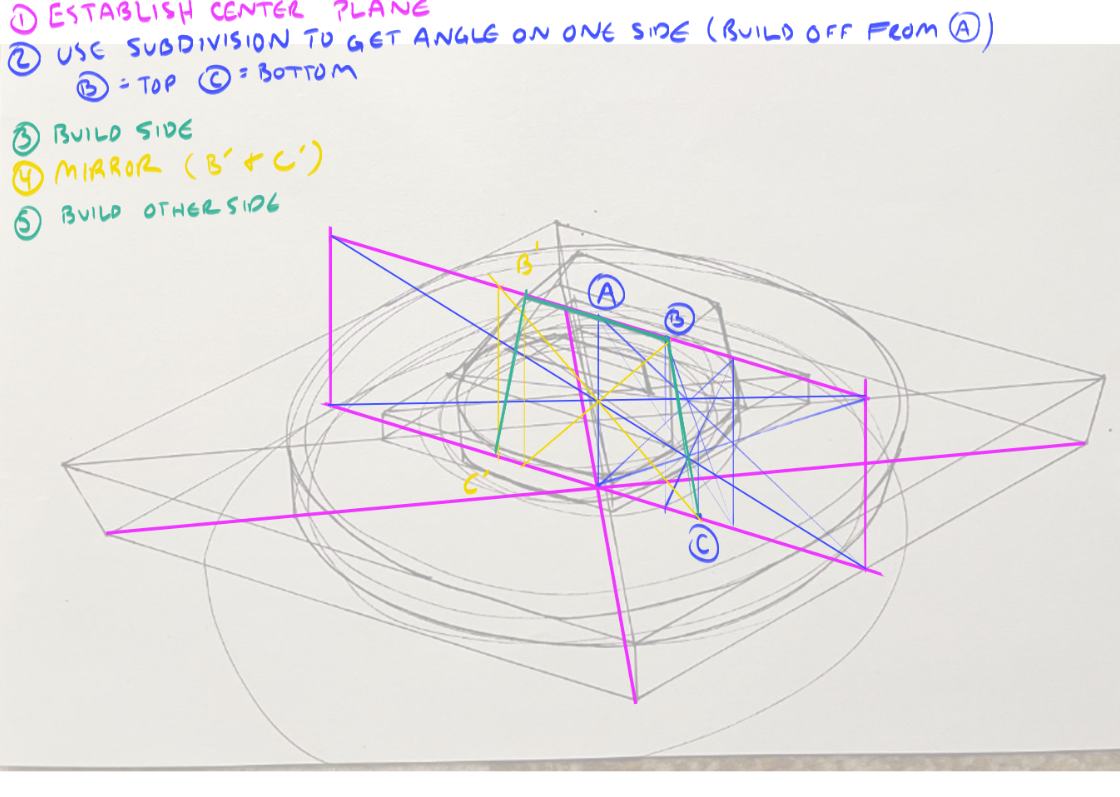 ① ESTABLISH CENTER PLANE
② USE SUBDIVISION TO GET ANGLE ON ONE SIDE (BUILD OFF FROM Ⓐ)
Ⓑ = TOP Ⓒ = BOTTOM
③ BUILD SIDE
④ MIRROR (B' + C')
⑤ BUILD OTHER SIDE
B'
Ⓐ
Ⓑ
C'
Ⓒ